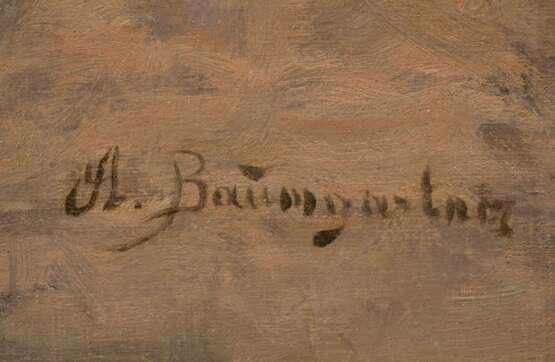 A. Baumgartner